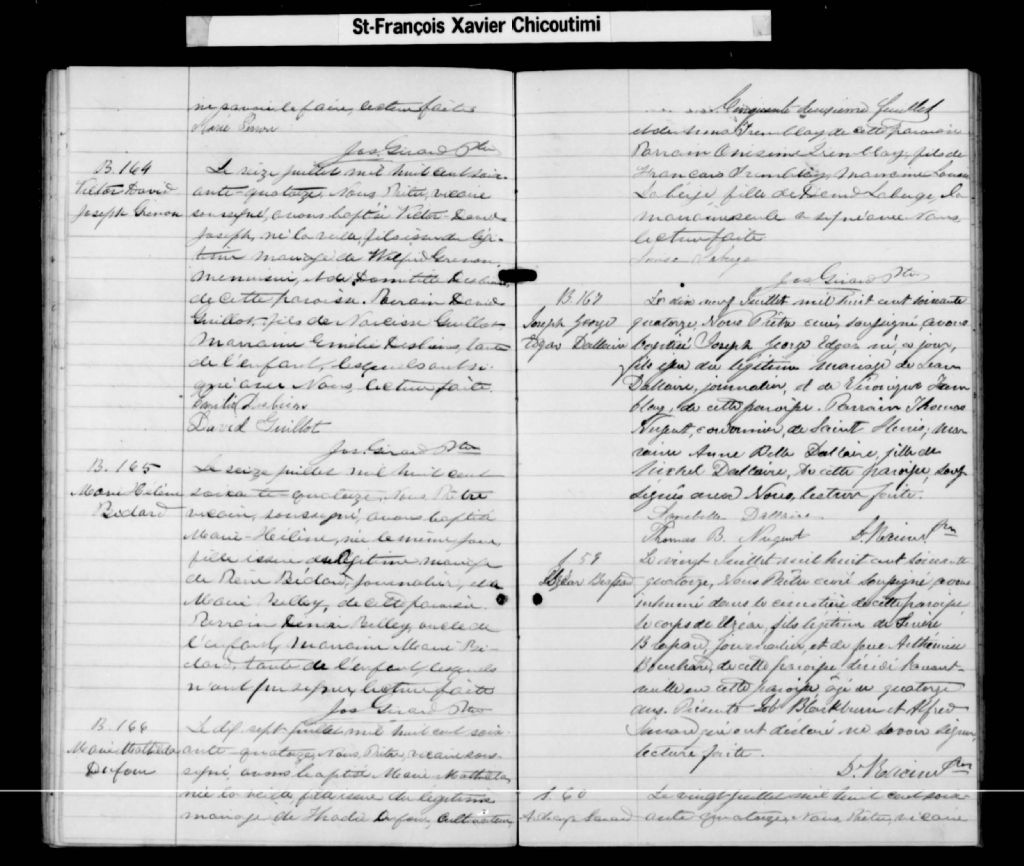 St-François Xavier Chicoutimi
ne savoir le faire, lecture faite
Marie Perron
Jos. Girard Ptre
B. 164
Victor David
Joseph Grenon
Le seize juillet mil huit cent soix-
ante-quatorze, Nous Prêtre, vicaire
soussigné, avons baptisé Victor David
Joseph, né la veille, fils issu du légi-
time mariage de Wilfrid Grenon,
menuisier, et de Domitilde Desbiens,
de cette paroisse. Parrain David
Guillot, fils de Narcisse Guillot
Marraine Emélie Desbiens, tante
de l'enfant, lesquels ont si-
gné avec Nous, lecture faite.
Emélie Desbiens
David Guillot
Jos. Girard Ptre
B. 165
Marie Hélène
Bédard
Le seize juillet mil huit cent
soixante-quatorze, Nous Prêtre
vicaire, soussigné, avons baptisé
Marie-Hélène, née le même jour,
fille issue du légitime mariage
de Bédard, journalier, et de
Marie Belley, de cette paroisse.
Parrain Belley, oncle de
l'enfant, Marraine Marie Bé-
dard, tante de l'enfant, lesquels
n'ont pu signer, lecture faite
Jos. Girard Ptre
B. 166
Marie Mathilda
Dufour
Le dix sept juillet mil huit cent soix-
ante-quatorze, Nous Prêtre, vicaire sous-
signé, avons baptisé Marie Mathilda,
née la veille, fille issue du légitime
mariage de Dufour, cultivateur,
Cinquante deuxième feuillet
et de Tremblay de cette paroisse
Parrain Onésime Tremblay, fils de
François Tremblay, marraine Louise
Laberge, fille de Laberge, la
marraine seule a signé avec Nous
lecture faite
Louise Laberge
Jos Girard Ptre
B. 167
Joseph George
Edgar Dallaire
Le dix neuf Juillet mil huit cent soixante
quatorze, Nous Prêtre curé, soussigné, avons
baptisé Joseph George Edgar né, ce jour,
fils issu du légitime mariage de
Dallaire, journalier, et de Véronique Trem-
blay, de cette paroisse. Parrain Thomas
Nugent, cordonnier, de Saint mar-
raine Anne Belle Dallaire, fille de
Michel Dallaire, de cette paroisse, sous-
signés avec Nous, lecture faite.
Dallaire
Thomas B. Nugent D. Racine Ptre
S. 59
Elzéar
Le vingt Juillet mil huit cent soixante
quatorze, Nous Prêtre curé soussigné, avons
inhumé dans le cimetière de cette paroisse
le corps de Elzéar, fils légitime de
journalier, et de feue
Bouchard, de cette paroisse décédé l'avant-
veille en cette paroisse âgé de quatorze
ans. Présents Job Blackburn et Alfred
Simard qui ont déclaré ne savoir signer,
lecture faite.
D. Racine Ptre
S. 60
Savard
Le vingt juillet mil huit cent soix-
ante quatorze, Nous Prêtre, vicaire